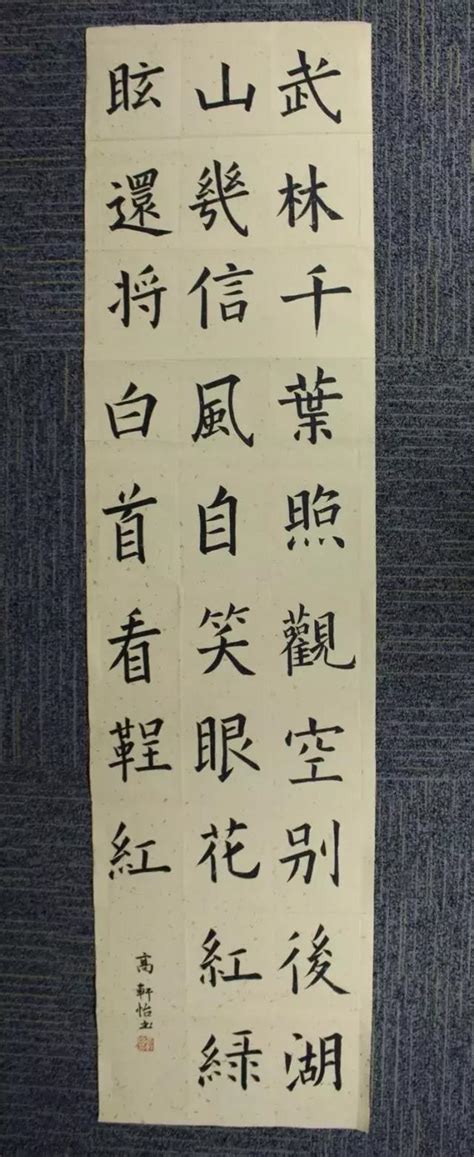 武林千葉照觀空别後湖
山幾信風自笑眼花紅綠
眩還将白首看鞓紅
高軒怡书